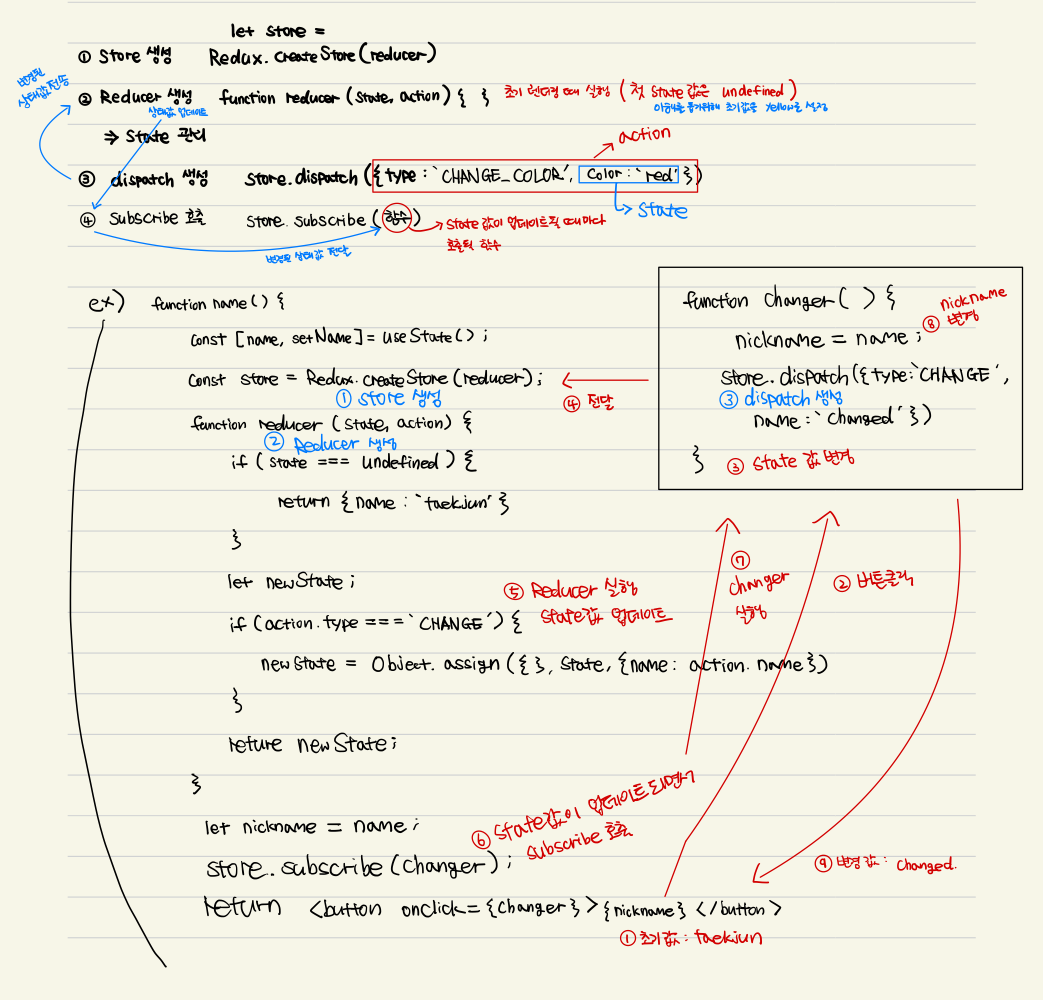 let store =
① Store 생성 Redux. createStore (reducer)
변경된
상태값 전송
② Reducer 생성 function reducer (state, action) { } 초기 렌더링 때 실행 ( 첫 state 값은 undefined )
상태값 업데이트 이해를 돕기위해 초기값은 yellow로 설정
⇒ State 관리
action
③ dispatch 생성 store. dispatch ({type : `CHANGE_COLOR', Color : `red' })
State
④ Subscribe 호출 store. subscribe ( 함수 ) state 값이 업데이트될 때마다
호출될 함수
변경된 상태값 전달
ex) function name () {
const [name, setName] = useState () ;
const store = Redux. createStore (reducer) ;
① store 생성
④ 전달
function reducer (state, action) {
② Reducer 생성
if ( state === undefined ) {
return {name : `taekjun' }
}
let newState ;
⑤ Reducer 실행
if (action. type === `CHANGE') { state값 업데이트
newState = Object. assign ({ }, state, {name: action. name})
}
return newState ;
}
let nickname = name ;
⑥ state값이 업데이트 되면서
subscribe 호출
store. subscribe (changer) ;
return <button onclick = {changer} > {nickname} </button>
① 초기값 : taekjun
function changer ( ) {
nickname
⑧ 변경
nickname = name ;
store. dispatch ({type: `CHANGE',
③ dispatch 생성
name : `changed' })
} ③ state 값 변경
⑦
changer
실행
② 버튼클릭
⑨ 변경값 : changed.